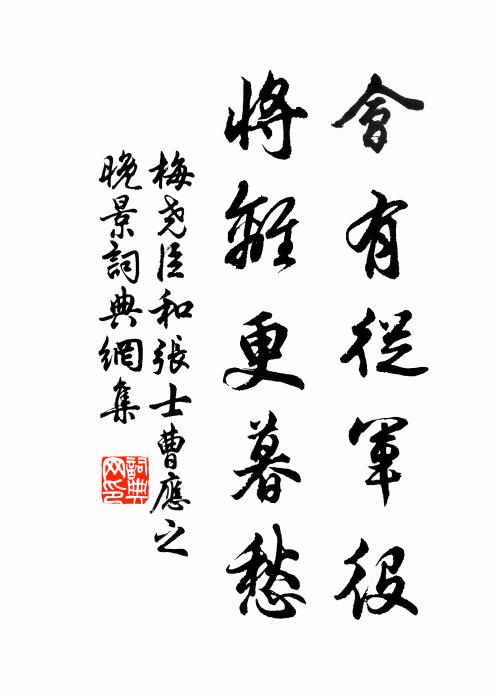 會有從軍役
將離更暮愁
梅尧臣和張士曹應之
晚景詞典網集
詞典網印